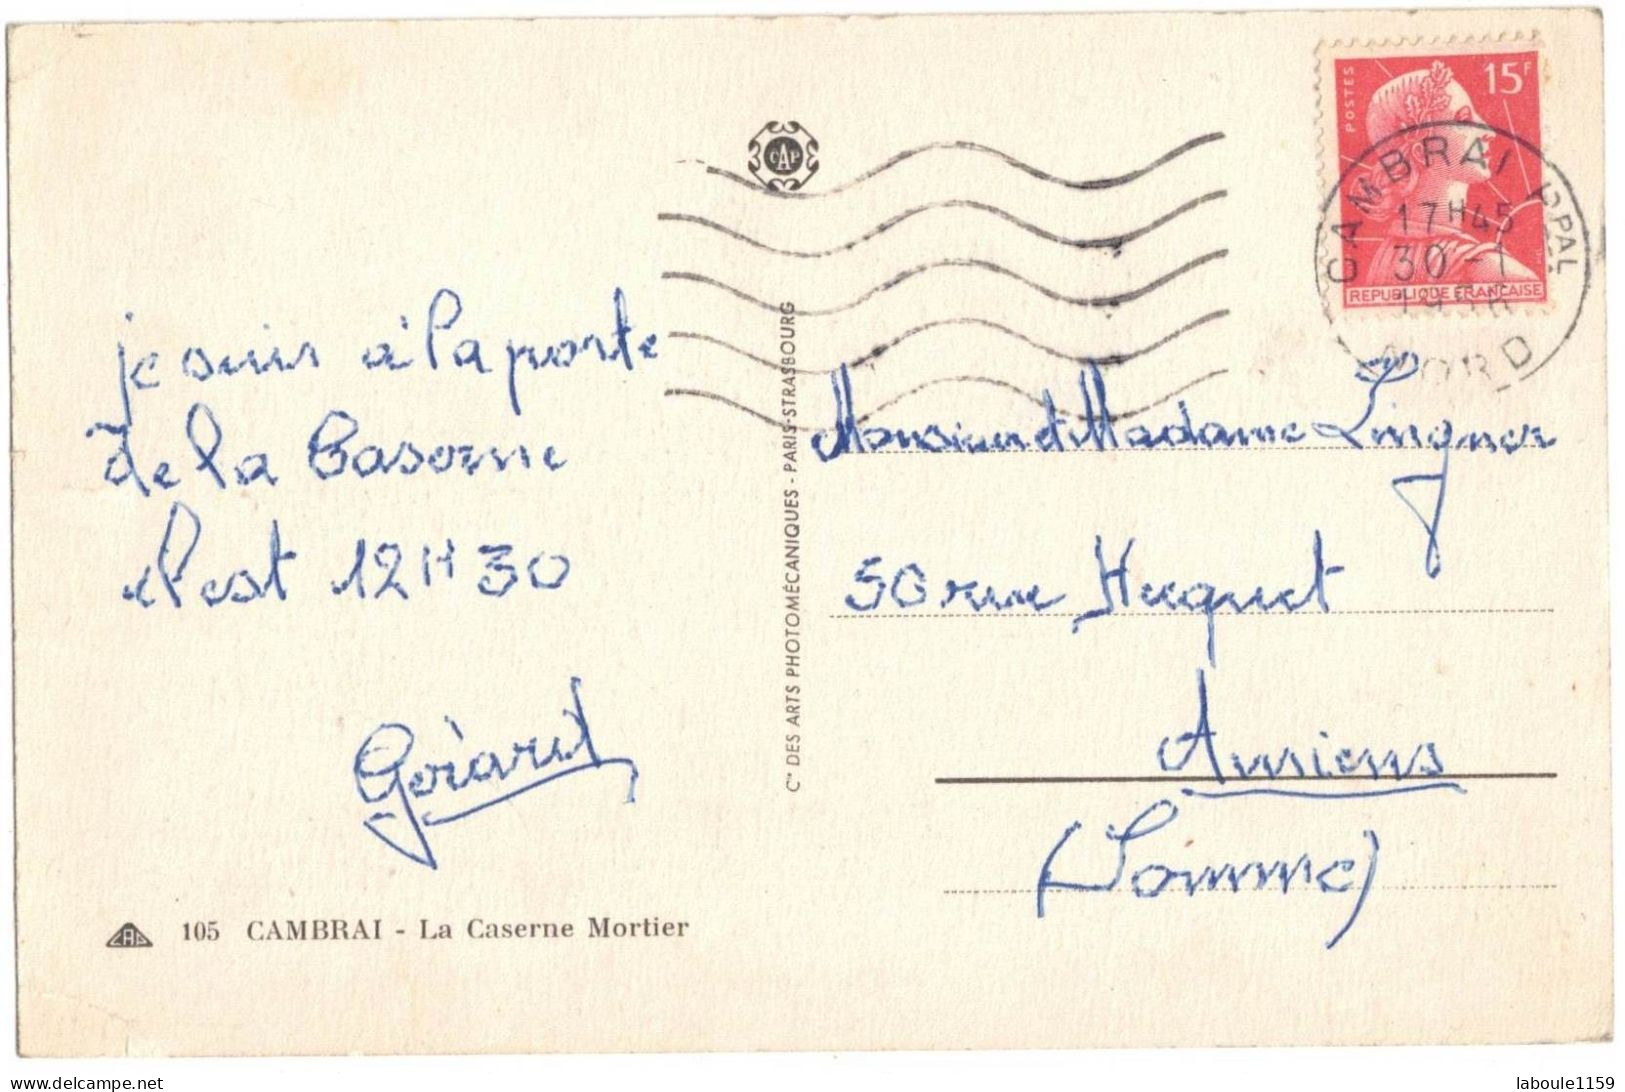 POSTES
15F
REPUBLIQUE FRANÇAISE
CAMBRAI PPAL
17H45
30-1
NORD
CAP
je suis à la porte
de la Caserne
il est 12H30
Gérard
C^ie DES ARTS PHOTOMÉCANIQUES - PARIS-STRASBOURG
Monsieur et Madame
50 rue Huquet
Amiens
(Somme)
CAP 105 CAMBRAI - La Caserne Mortier
www.delcampe.net
laboule1159